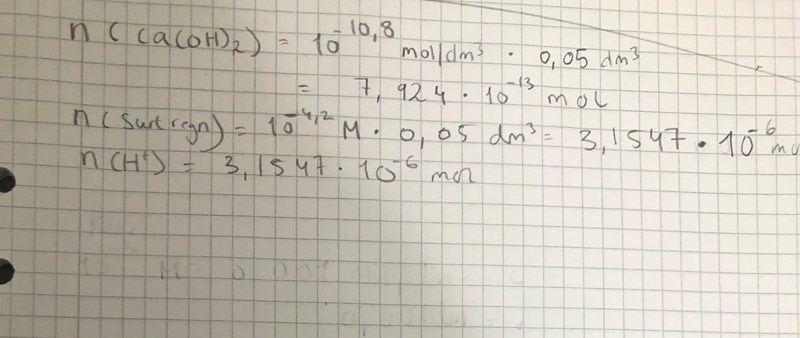 n ( Ca(OH)₂ ) = 10⁻¹⁰,⁸ mol/dm³ · 0,05 dm³
= 7,924 · 10⁻¹³ mol
n ( Surt regn ) = 10⁻⁴,² M · 0,05 dm³ = 3,1547 · 10⁻⁶ mo
n (H⁺) = 3,1547 · 10⁻⁶ mol